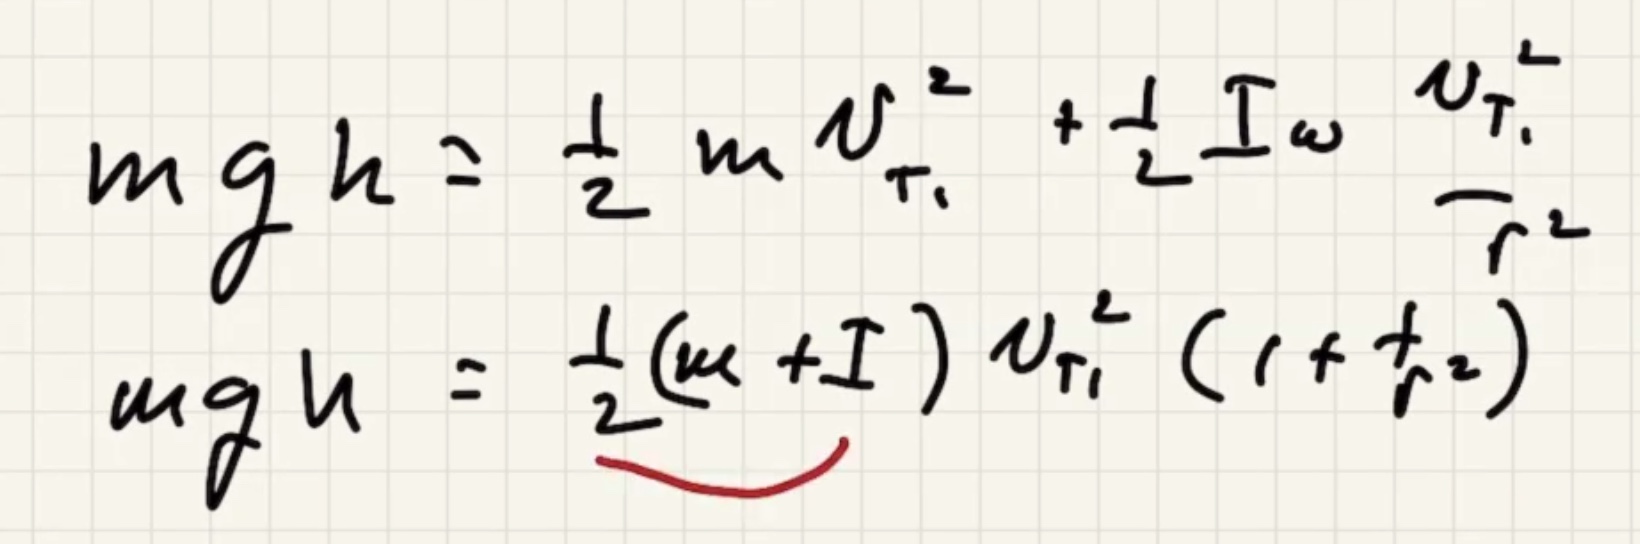 mgh = 1/2 m v_T₁² + 1/2 I ω v_T₁²/r²
mgh = 1/2 (m + I) v_T₁² (1 + 1/r²)